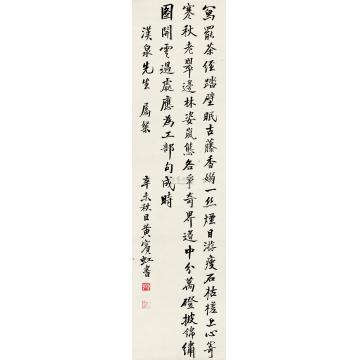 寫罷茶經踏壁眠古藤香嫋一絲煙目游瘦石枯槎上心寄
寒秋老翠邊林姿嵐態各爭奇界道中分萬磴披錦繡
圖開雲過處應為工部句成時
漢泉先生屬篆
辛未秋日黃賓虹書